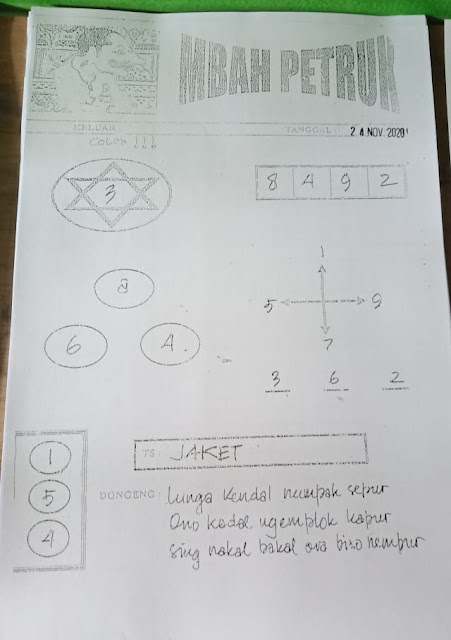 MBAH PETRUK
KELUAR TANGGAL : 24 NOV. 2020
COLOK !!!
3
8 4 9 2
1
5 9
7
2
6 4
3 6 2
1
5
4
TS : JAKET
DONGENG : Lunga Kendal numpak sepur
Ono kadal ngemplok kapur
Sing nakal bakal ora biso nempur